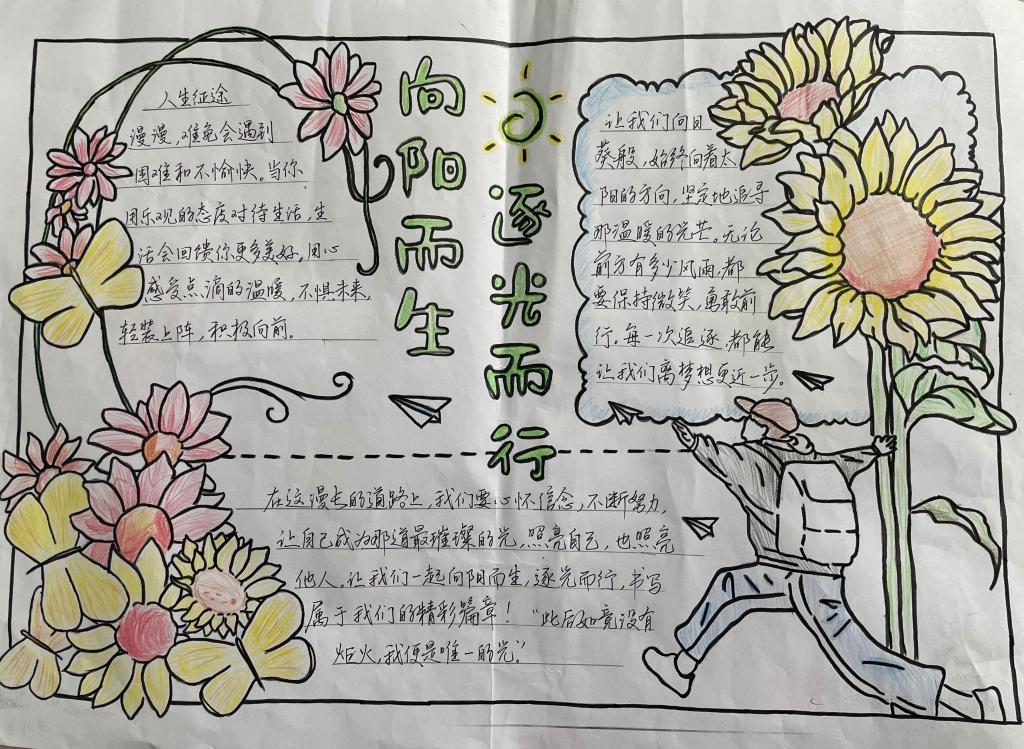 向阳而生
逐光而行
人生征途
漫漫，难免会遇到
困难和不愉快。当你
用乐观的态度对待生活，生
活会回馈你更多美好。用心
感受点滴的温暖，不惧未来，
轻装上阵，积极向前。
让我们向日
葵般，始终向着太
阳的方向，坚定地追寻
那温暖的光芒。无论
前方有多少风雨，都
要保持微笑，勇敢前
行。每一次追逐，都能
让我们离梦想更近一步。
在这漫长的道路上，我们要心怀信念，不断努力，
让自己成为那道最璀璨的光，照亮自己，也照亮
他人。让我们一起向阳而生，逐光而行，书写
属于我们的精彩篇章！“此后如竟没有
炬火，我便是唯一的光。”